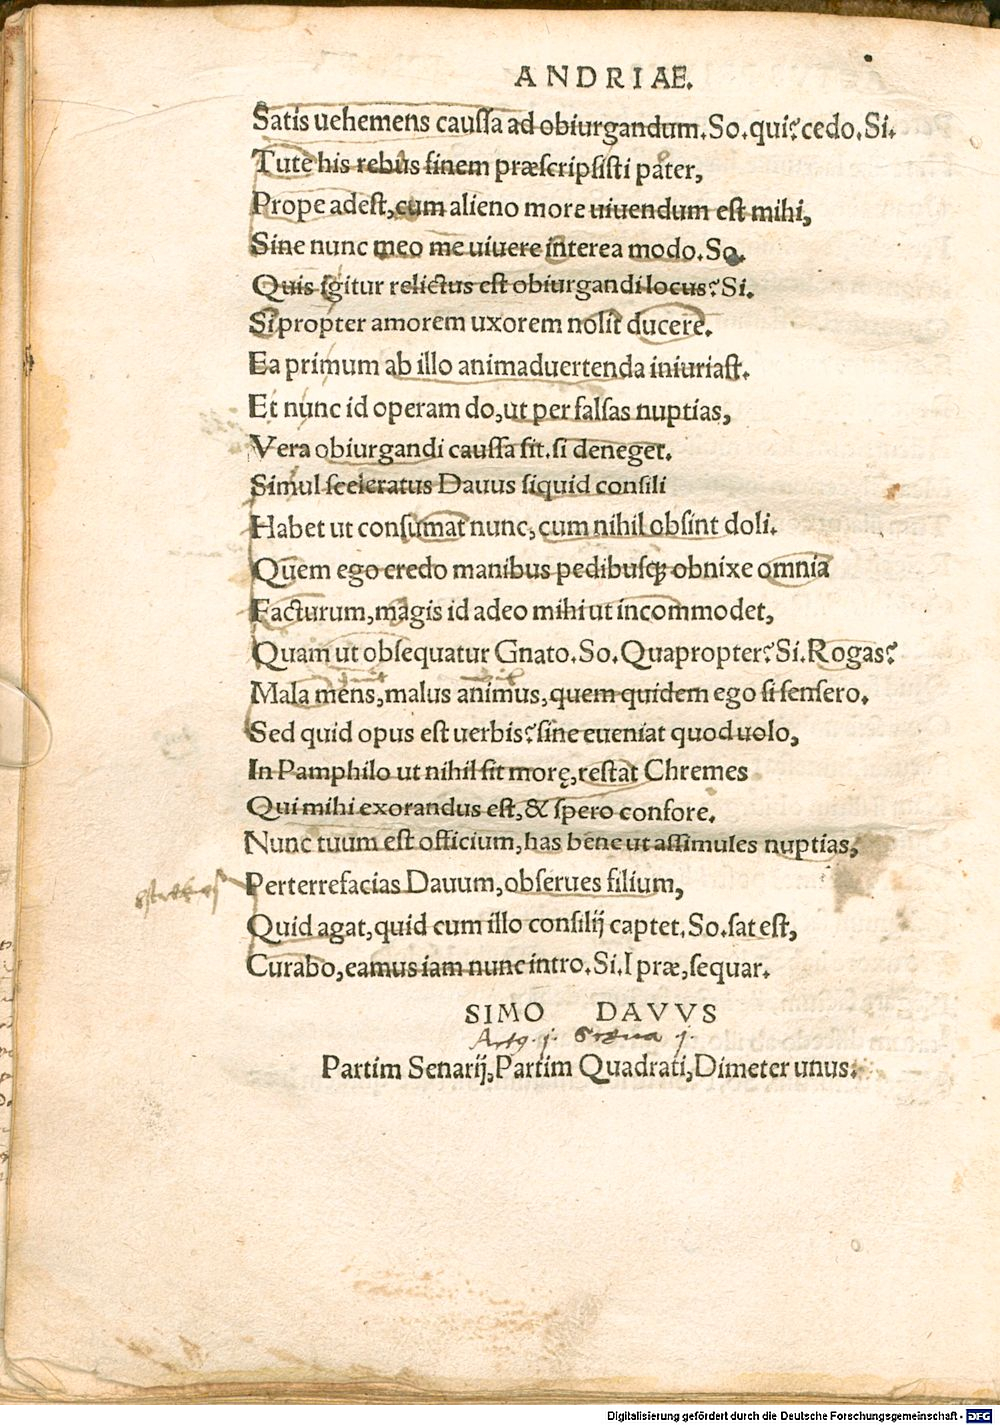 ANDRIAE.
Satis uehemens caussa ad obiurgandum. So. qui? cedo. Si.
Tute his rebus finem præscripsisti pater,
Prope adest, cum alieno more uiuendum est mihi,
Sine nunc meo me uiuere interea modo. So.
Quis igitur relictus est obiurgandi locus? Si.
Si propter amorem uxorem nolit ducere.
Ea primum ab illo animaduertenda iniuriast.
Et nunc id operam do, ut per falsas nuptias,
Vera obiurgandi caussa sit. si deneget.
Simul sceleratus Dauus siquid consili
Habet ut consumat nunc, cum nihil obsint doli.
Quem ego credo manibus pedibusq; obnixe omnia
Facturum, magis id adeo mihi ut incommodet,
Quam ut obsequatur Gnato. So. Quapropter? Si. Rogas?
Mala mens, malus animus, quem quidem ego si sensero.
Sed quid opus est uerbis? sine eueniat quod uolo,
In Pamphilo ut nihil sit morę, restat Chremes
Qui mihi exorandus est, & spero confore.
Nunc tuum est officium, has bene ut assimules nuptias,
Perterrefacias Dauum, obserues filium,
Quid agat, quid cum illo consilij captet. So. sat est,
Curabo, eamus iam nunc intro. Si. I præ, sequar.
SIMO DAVVS
Partim Senarij, Partim Quadrati, Dimeter unus.
Digitalisierung gefördert durch die Deutsche Forschungsgemeinschaft - DFG